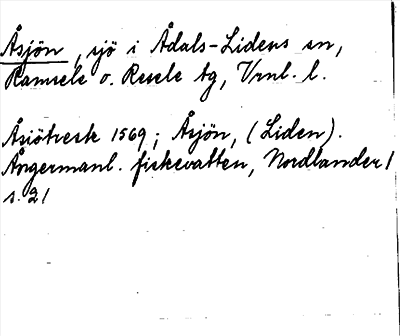 Åsjön, sjö i Ådals-Lidens sn,
Ramsele o. Resele tg, Vrnl. l.
Åsiötresk 1569; Åsjön, (Liden).
Ångermanl. fiskevatten, Nordlander 1
s. 21